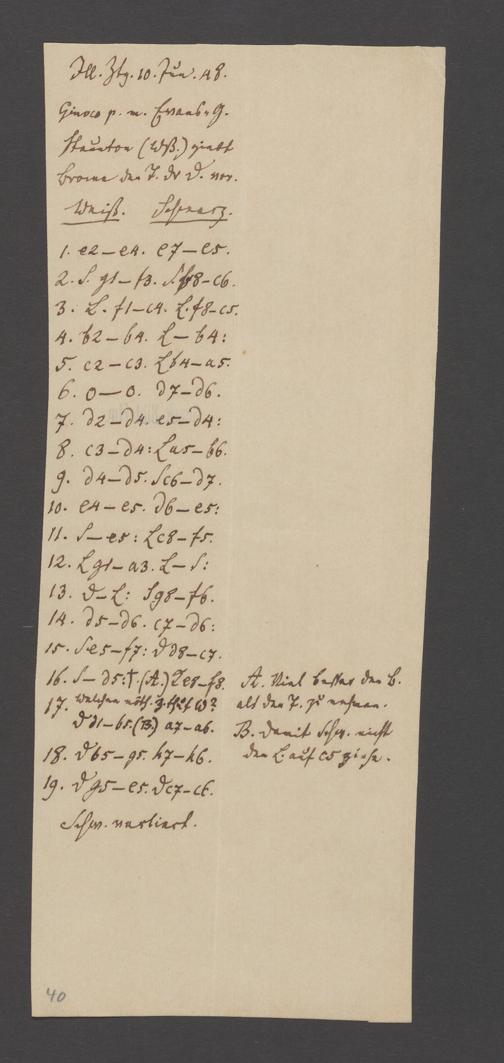 Ill. Ztg. 10. Jun. 48.
Giuoco p. m. Evans G.
Staunton (Wß.) giebt
Brown den T. der D. vor.
Weiß. Schwarz.
1. e2–e4. e7–e5.
2. S. g1–f3. S. b8–c6.
3. L. f1–c4. L. f8–c5.
4. b2–b4. L–b4:
5. c2–c3. Lb4–a5.
6. 0–0. d7–d6.
7. d2–d4. e5–d4:
8. c3–d4: La5–b6.
9. d4–d5. Sc6–d7.
10. e4–e5. d6–e5:
11. S–e5: Lc8–f5.
12. Lg1–a3. L–S:
13. D–L: Sg8–f6.
14. d5–d6. c7–d6:
15. S. e5–f7: Dd8–c7.
16. S–d5:†. (A.) Ke8–f8.
17. Welchen nöth. Z. thut W?
Dd1–b5. (B.) a7–a6.
18. Db5–g5. h7–h6.
19. Dg5–e5. Dc7–c6.
Schw. verliert.
A. Viel besser den B.
als den T. zu nehmen.
B. Damit Schw. nicht
den L. auf c5 ziehe.
40